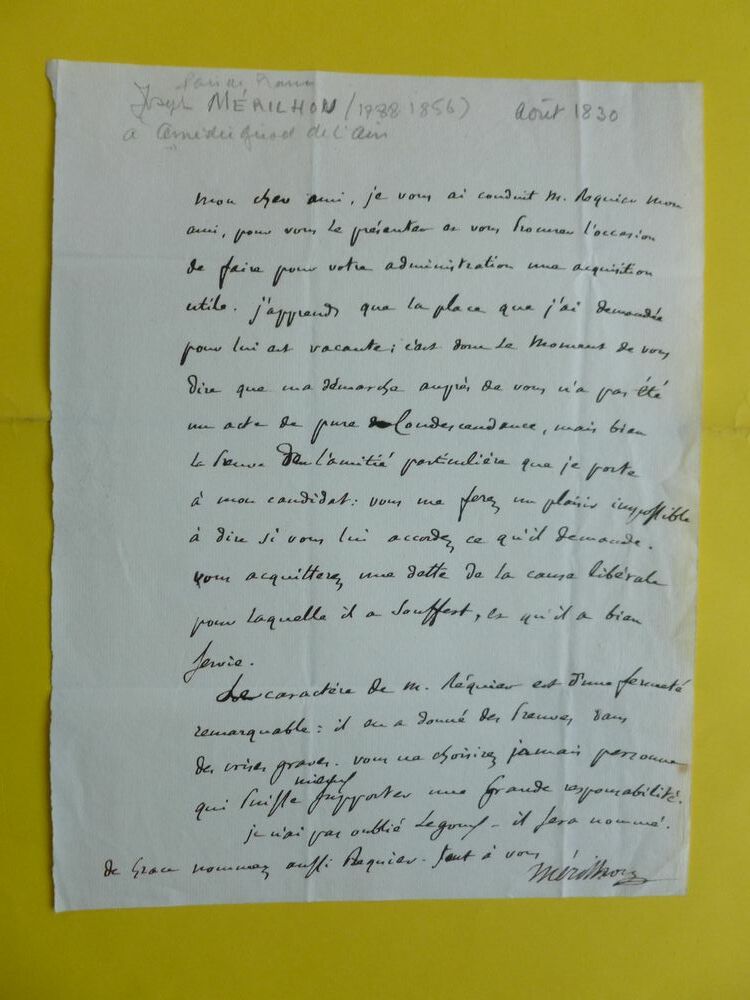 Pair de France
Joseph MÉRILHON (1788 1856) Août 1830
à Amédée Girod de l'Ain
mon cher ami, je vous ai conduit M. Requier mon
ami, pour vous le présenter et vous procurer l'occasion
de faire pour votre administration une acquisition
utile. j'apprends que la place que j'ai demandée
pour lui est vacante; c'est donc le moment de vous
dire que ma démarche auprès de vous n'a pas été
un acte de pure condescendance, mais bien
la preuve de l'amitié particulière que je porte
à mon candidat: vous me ferez un plaisir impossible
à dire si vous lui accordez ce qu'il demande.
vous acquitterez une dette de la cause libérale
pour laquelle il a souffert, et qu'il a bien
servie.
Le caractère de m. Réquier est d'une fermeté
remarquable: il en a donné des preuves dans
des crises graves. vous ne choisirez jamais personne
qui puisse mieux supporter une grande responsabilité.
je n'ai pas oublié - il sera nommé.
de grace nommez aussi Requier. tout à vous
Mérilhou